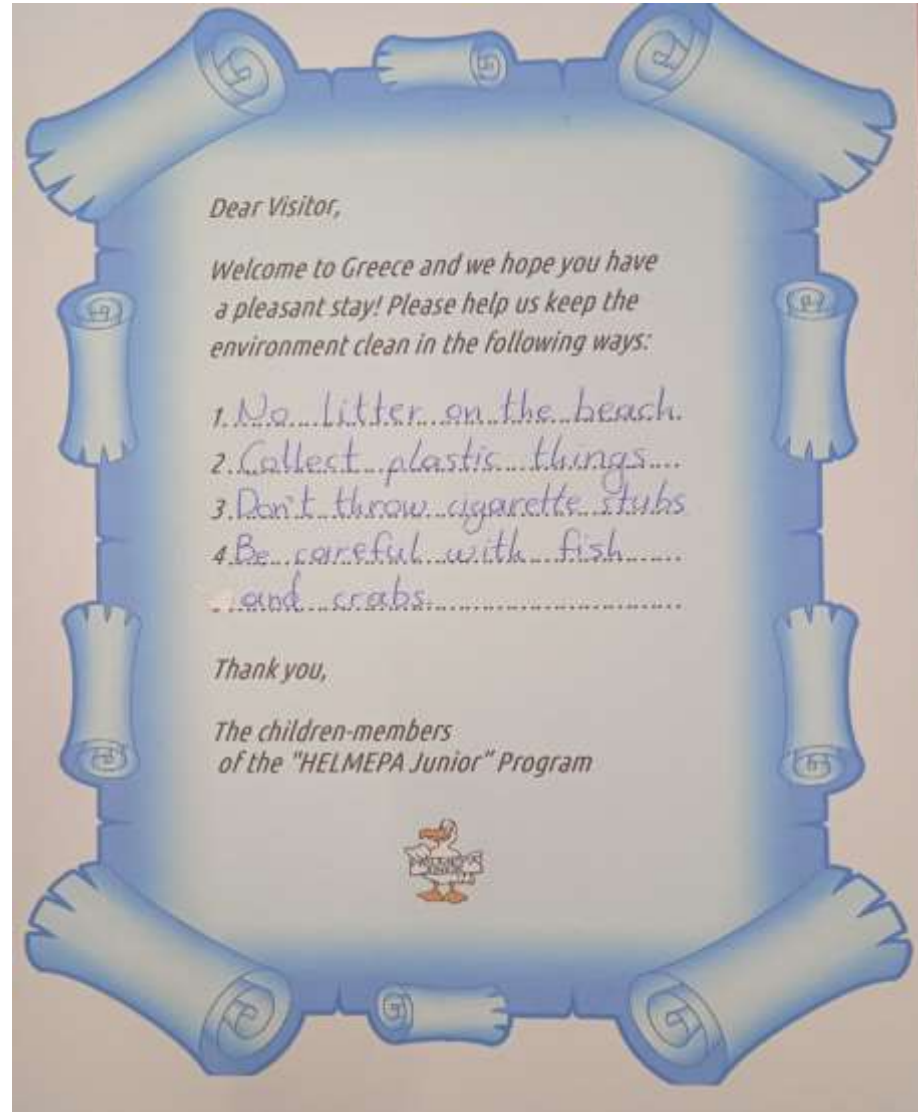 Dear Visitor,
Welcome to Greece and we hope you have
a pleasant stay! Please help us keep the
environment clean in the following ways:
1. No litter on the beach.
2. Collect plastic things
3. Don't throw cigarette stubs
4. Be careful with fish
and crabs.
Thank you,
The children-members
of the "HELMEPA Junior" Program
HELMEPA
JUNIOR